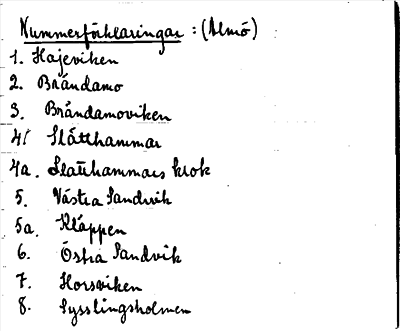 Nummerförklaringar : (Almö)
1. Hajeviken
2. Brándamo
3. Brándamoviken
4. Slátthammar
4a. Slatthammars krok
5. Västra Sandvik
5a. Kläppen
6. Östra Sandvik
7. Horsviken
8. Sysslingsholmen